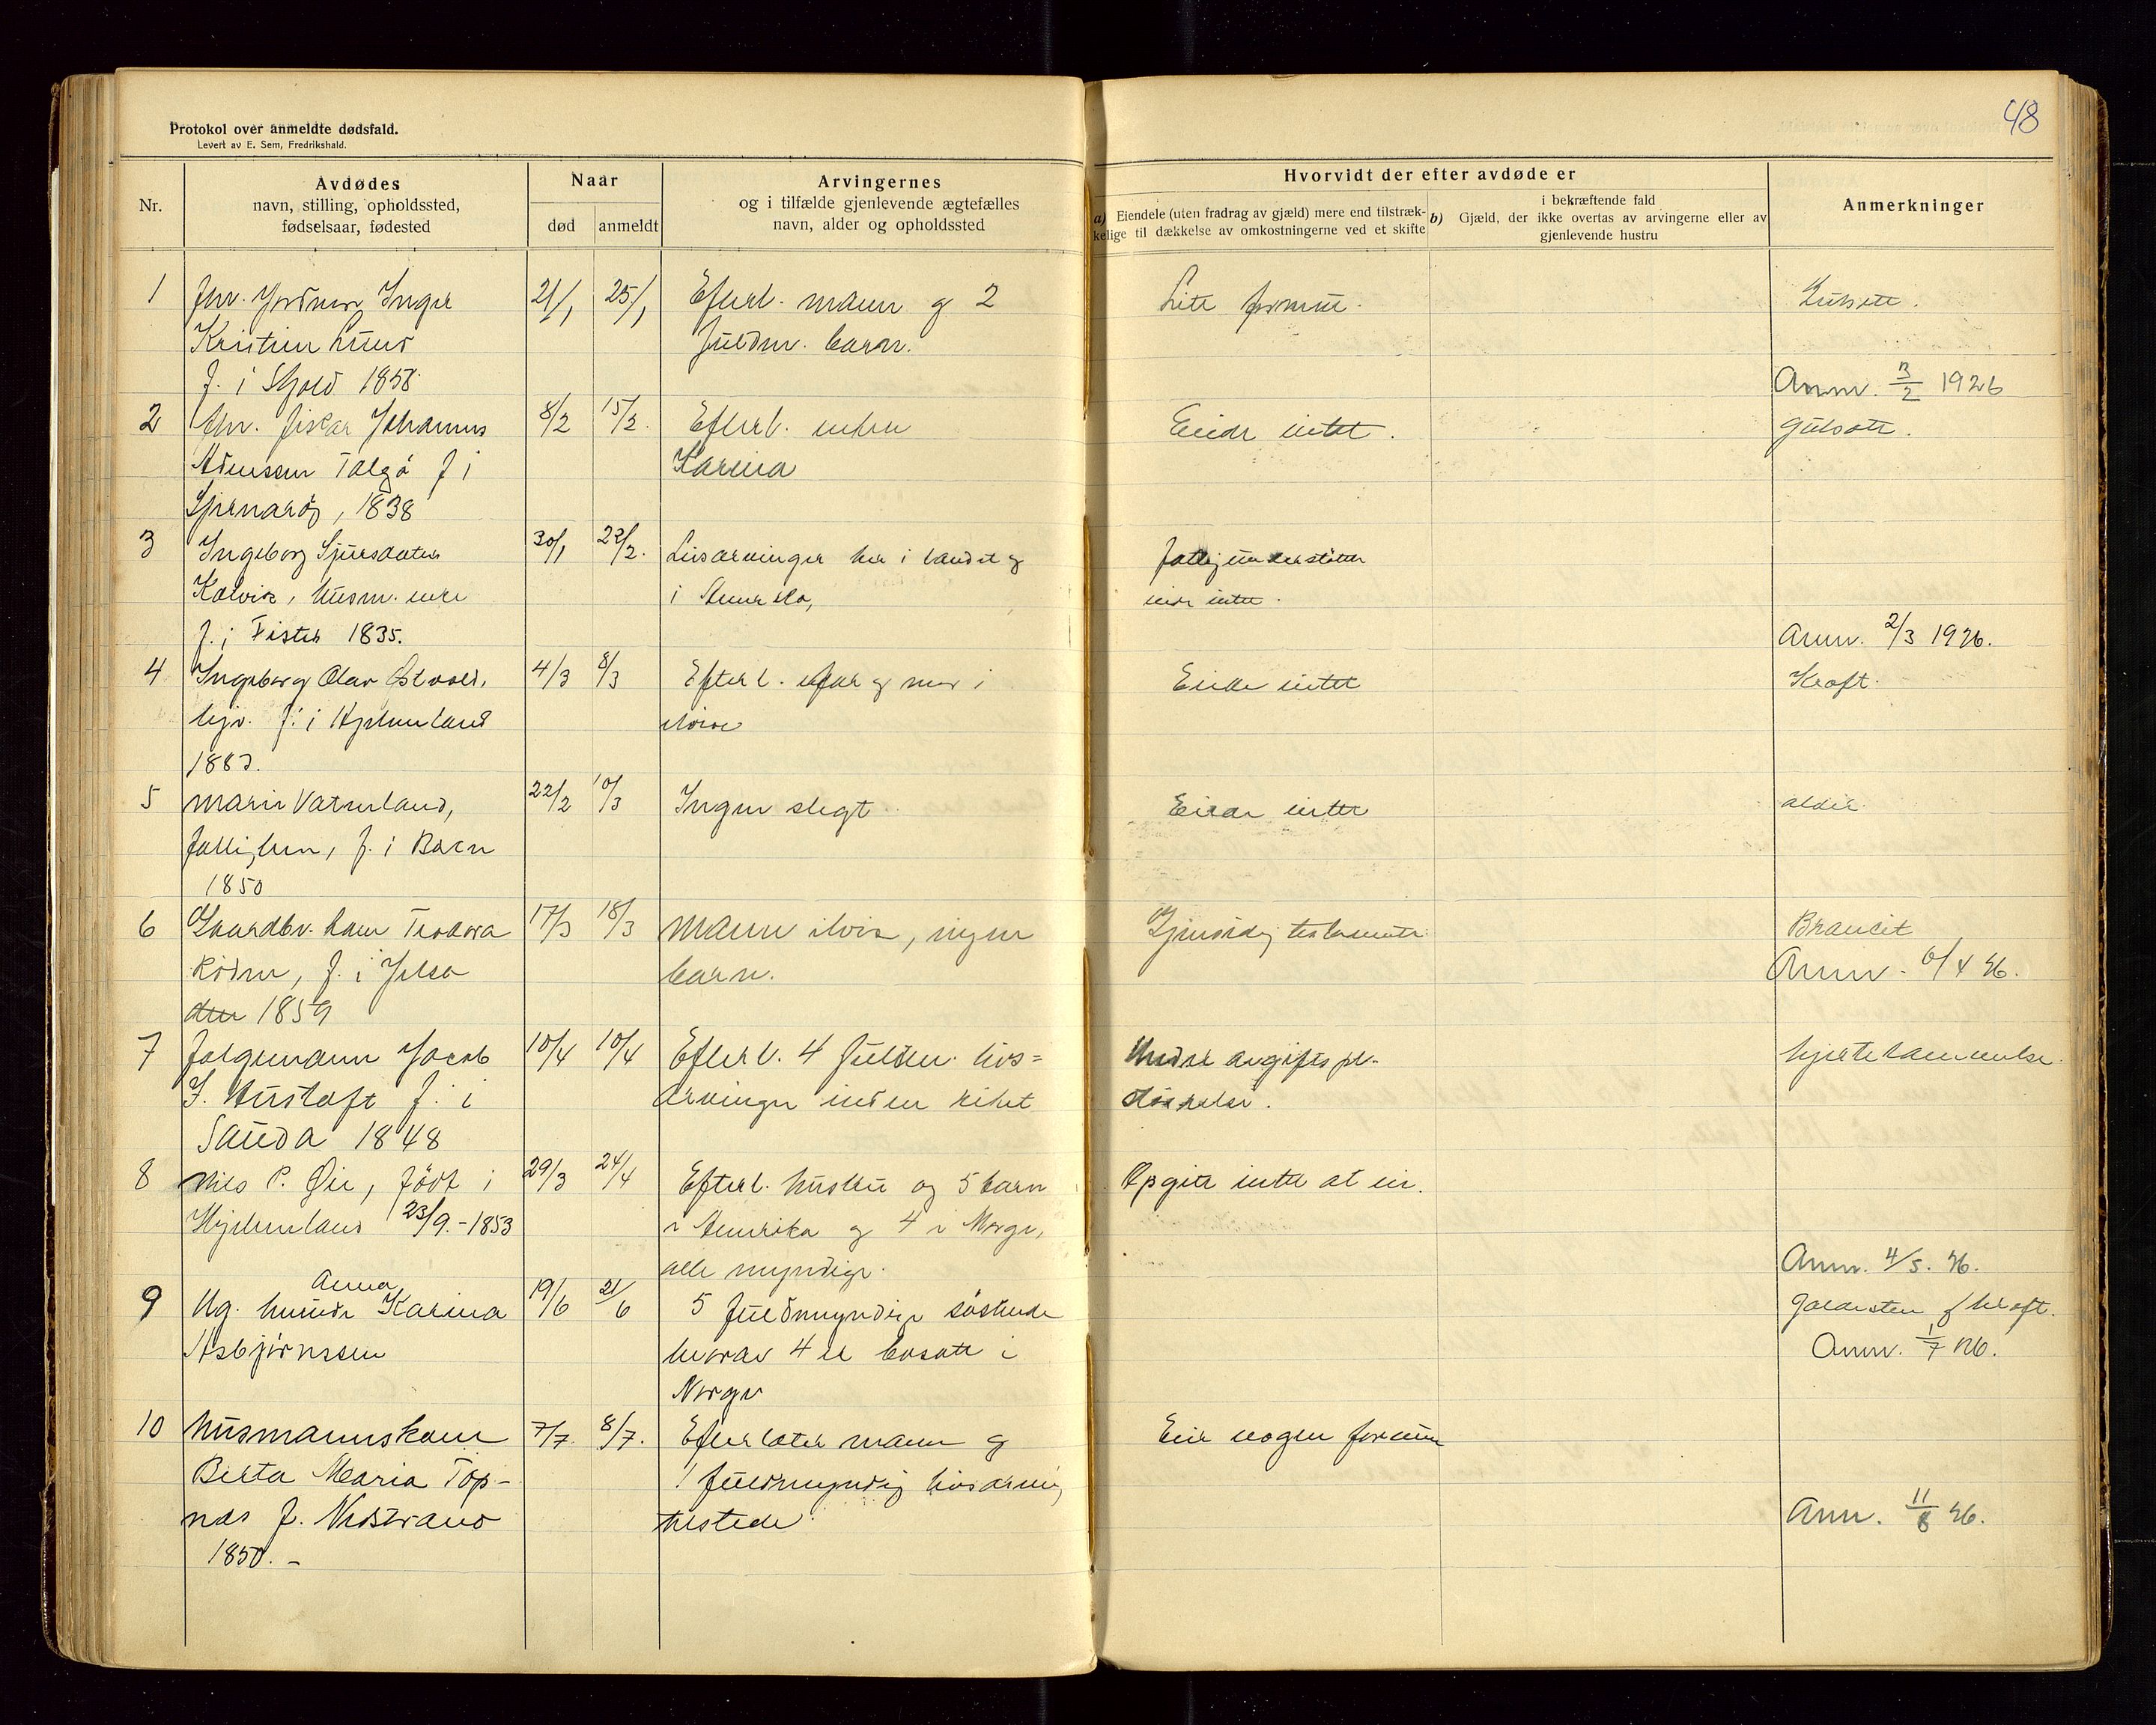 48
Protokol over anmeldte dødsfald.
Levert av E. Sem, Fredrikshald.
Nr.
Avdødes
navn, stilling, opholdssted,
fødselsaar, fødested
Naar
død
anmeldt
Arvingernes
og i tilfælde gjenlevende ægtefælles
navn, alder og opholdssted
Hvorvidt der efter avdøde er
a) Eiendele (uten fradrag av gjæld) mere end tilstræk-
kelige til dækkelse av omkostningerne ved et skifte
i bekræftende fald
b) Gjæld, der ikke overtas av arvingerne eller av
gjenlevende hustru
Anmerkninger
1 Inger 21/1 25/1 Efterl. mann og 2 Litt formue.
Kristine Lund fuldm. barn.
f. i Skjold 1858.
Anm. 3/2 1926
2 fisker Johannes 8/2 15/2. Efterl. enken Eiede intet.
Talgø f i Karina
Sjernarøy, 1838
3 Ingeborg Sjursdatter 30/1 22/2. Livsarvinger her i landet og fattigunderstøttet
Kalvik, husm. enke i Amerika, eiede intet.
f. i Fister 1835.
Anm. 2/3 1926.
4 Ingeborg Olav Østvold, 4/3 8/3 Efterl. far og mor i Eiede intet Kræft.
f. i Hjelmeland
5 Marie Vatneland, 22/2 10/3 Ingen slegt Eiede intet alder.
f. i
1850
6 Teodora 17/3 18/3 Mann ilive, ingen Gjensidig testamente
f. i Jelsa barn. Anm. 6/4 26.
1859
7 Folgemann Jacob 10/4 10/4 Efterl. 4 fuldm. livs= Under avgiftspl. hjertelammelse.
f. i arvinger inden riket størrelse.
Sauda 1848
8 Nils P. Øie, født i 29/3 24/4 Efterl. hustru og 5 barn Opgitt intet at eie.
Hjelmeland 23/9.-1853 i Amerika og 4 i Norge,
alle myndige. Anm. 4/5. 26.
9 Ug. kvinde Anna Karina 19/6 21/6 5 fuldmyndige søskende Galdesten
Asbjørnssen hvorav 4 er bosatt i Anm. 1/7 26.
Norge
10 Husmannskone 7/7. 8/7. Efterlater mann og Eier nogen formue
Berta Maria Top- 1 fuldmyndig livsarving
nes f. Nedstrand tilstede. Anm. 11/8 26.
1850. -